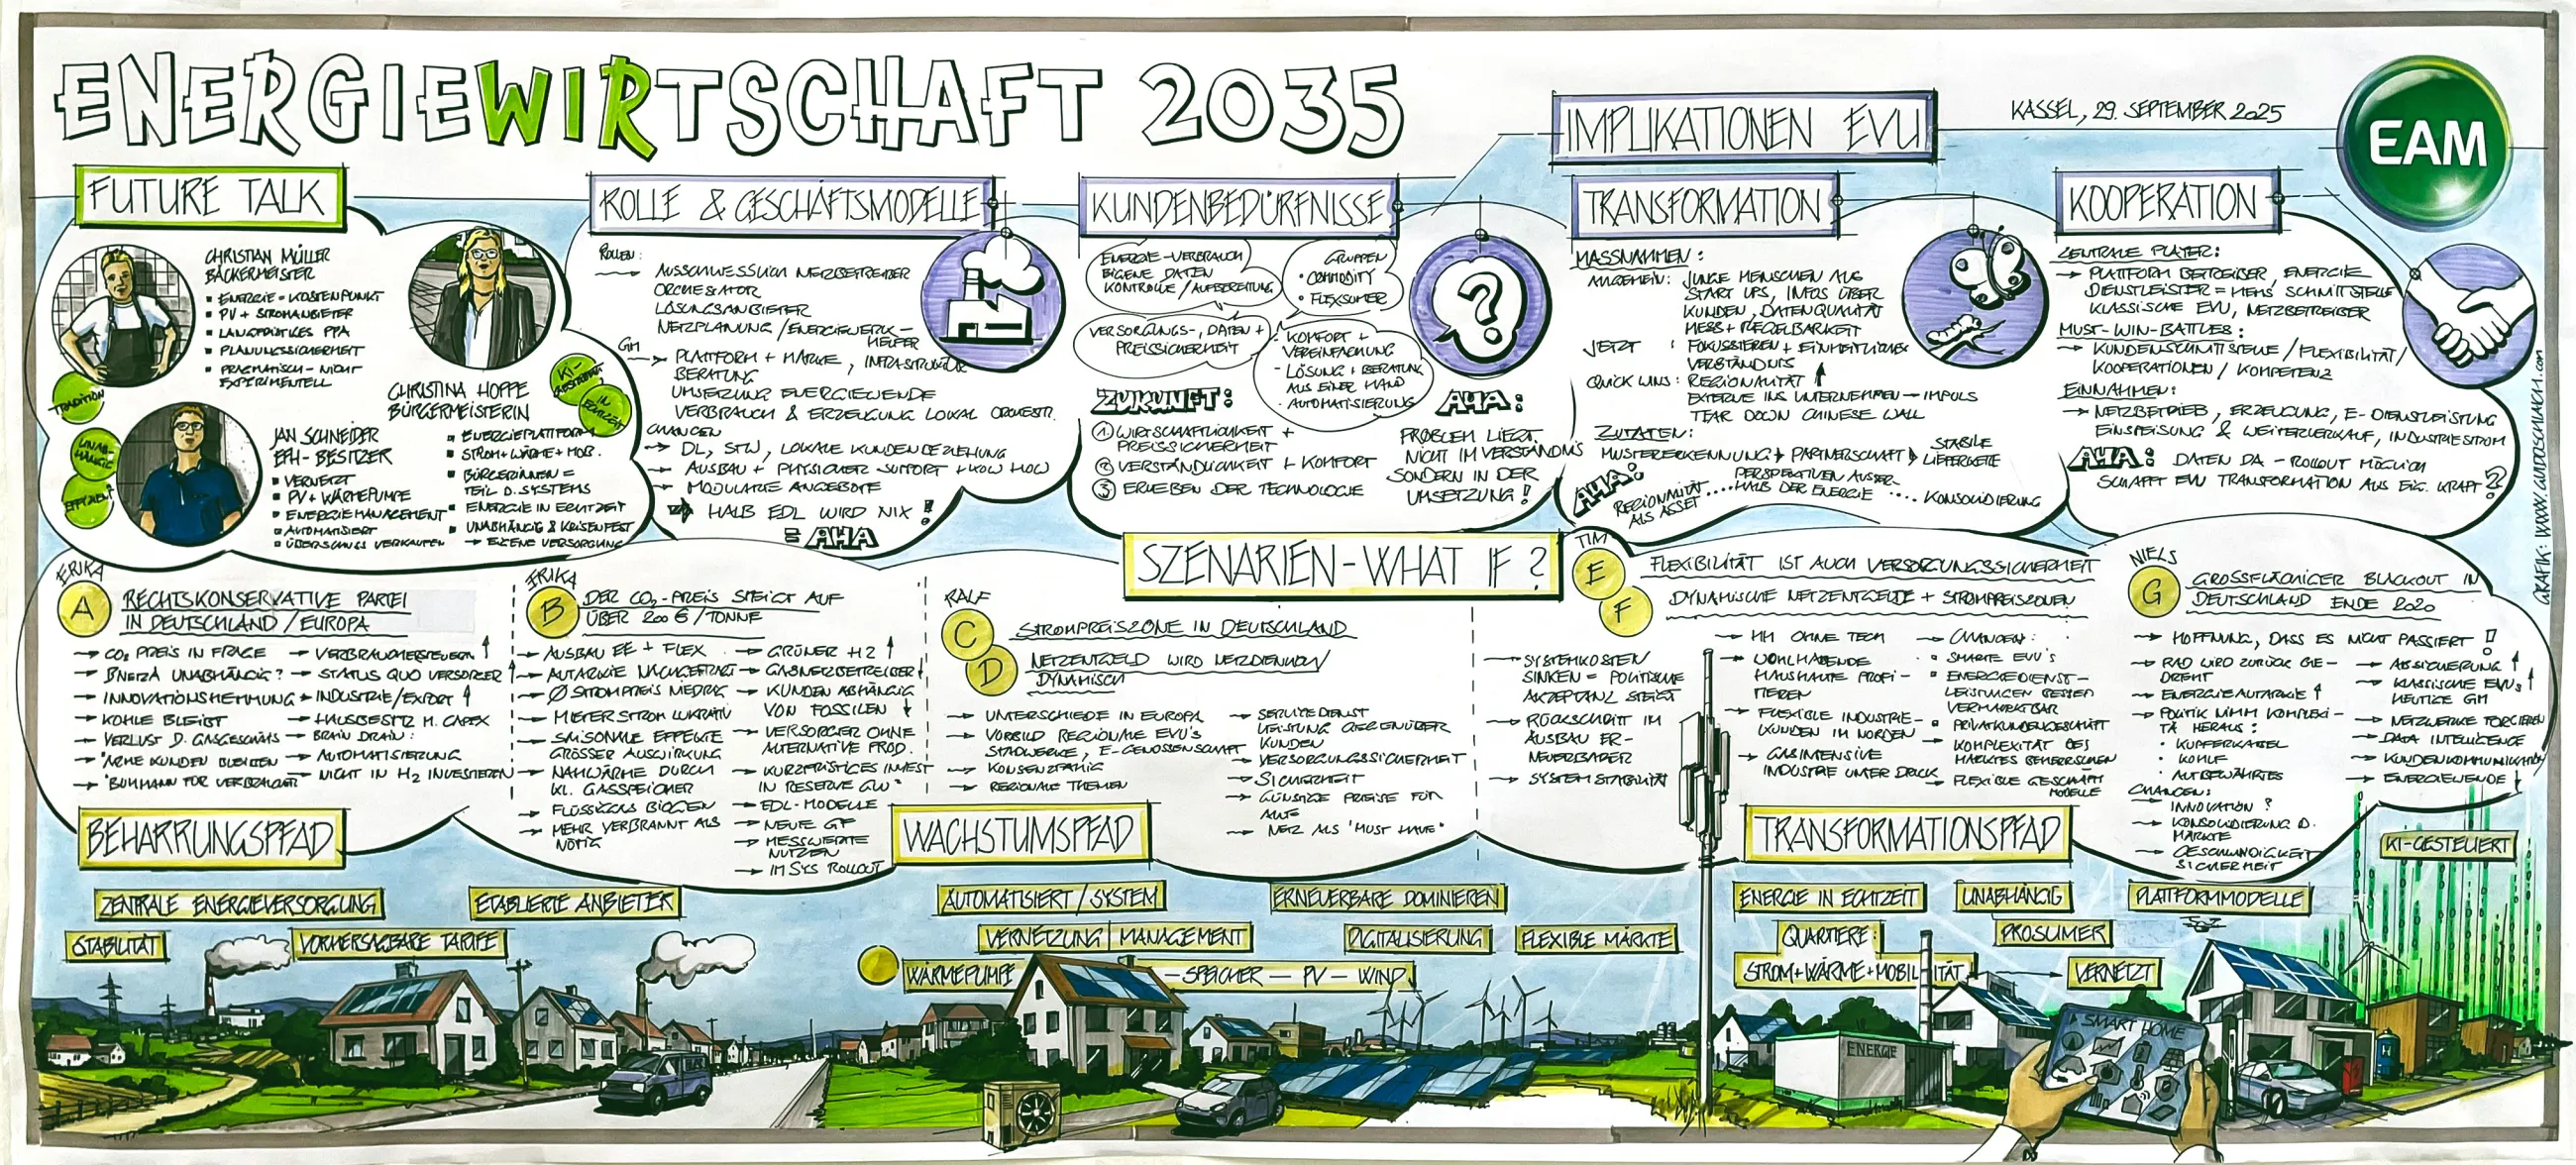 ENERGIEWIRTSCHAFT 2035
IMPLIKATIONEN EVU
KASSEL, 29. SEPTEMBER 2025
EAM
FUTURE TALK
CHRISTIAN MÜLLER
BÄCKERMEISTER
ENERGIE = KOSTENPUNKT
PV + STROMANBIETER
LANGFRISTIGES PPA
PLANUNGSSICHERHEIT
PRAGMATISCH - NICHT
EXPERIMENTELL
TRADITION
CHRISTINA HOPPE
BÜRGERMEISTERIN
KI-
IN
ECHTZEIT
ENERGIEPLATTFORM
STROM + WÄRME + MOB.
BÜRGERINNEN =
TEIL D. SYSTEMS
ENERGIE IN ECHTZEIT
UNABHÄNGIG & KRISENFEST
→ EIGENE VERSORGUNG
UNAB-
HÄNGIG
EFFIZIENT
JAN SCHNEIDER
EFH-BESITZER
VERNETZT
PV + WÄRMEPUMPE
ENERGIEMANAGEMENT
AUTOMATISIERT
ÜBERSCHUSS VERKAUFEN
ROLLE & GESCHÄFTSMODELLE
ROLLEN:
AUSSCHLIESSLICH NETZBETREIBER
ORCHESTRATOR
LÖSUNGSANBIETER
NETZPLANUNG / ENERGIEWERK-
HELFER
GM
→ PLATTFORM + MARKE, INFRASTRUKTUR
BERATUNG
UMSETZUNG ENERGIEWENDE
VERBRAUCH & ERZEUGUNG LOKAL ORCHESTR.
CHANCEN
→ DL, STW, LOKALE KUNDENBEZIEHUNG
→ AUSBAU + PHYSISCHER SUPPORT + KNOW HOW
→ MODULARE ANGEBOTE
→ HALB EDL WIRD NIX!
= AHA
KUNDENBEDÜRFNISSE
ENERGIE-VERBRAUCH
EIGENE DATEN
KONTROLLE / AUFBEREITUNG
GRUPPEN
• COMMODITY
• FLEXSUMER
VERSORGUNGS-, DATEN +
PREISSICHERHEIT
• KOMFORT +
VEREINFACHUNG
- LÖSUNG + BERATUNG
AUS EINER HAND
• AUTOMATISIERUNG
ZUKUNFT:
① WIRTSCHAFTLICHKEIT +
PREISSICHERHEIT
② VERSTÄNDLICHKEIT + KOMFORT
③ ERLEBEN DER TECHNOLOGIE
AHA:
PROBLEM LIEGT
NICHT IM VERSTÄNDNIS
SONDERN IN DER
UMSETZUNG!
TRANSFORMATION
MASSNAHMEN:
ANGEHEN: JUNGE MENSCHEN AUS
START UPS, INFOS ÜBER
KUNDEN, DATENQUALITÄT
MESS + REGELBARKEIT
JETZT: FOKUSSIEREN + EINHEITLICHES
VERSTÄNDNIS
QUICK WINS: REGIONALITÄT ↑
EXTERNE INS UNTERNEHMEN → IMPULS
TEAR DOWN CHINESE WALL
ZUTATEN:
MUSTERERKENNUNG → PARTNERSCHAFT → STABILE
LIEFERKETTE
AHA:
REGIONALITÄT
ALS ASSET
.... PERSPEKTIVEN AUSSER-
HALB DER ENERGIE .... KONSOLIDIERUNG
KOOPERATION
ZENTRALE PLAYER:
→ PLATTFORM BETREIBER, ENERGIE
DIENSTLEISTER = HEMS SCHNITTSTELLE
KLASSISCHE EVU, NETZBETREIBER
MUST-WIN-BATTLES:
→ KUNDENSCHNITTSTELLE / FLEXIBILITÄT /
KOOPERATIONEN / KOMPETENZ
EINNAHMEN:
→ NETZBETRIEB, ERZEUGUNG, E-DIENSTLEISTUNG
EINSPEISUNG & WEITERVERKAUF, INDUSTRIESTROM
AHA: DATEN DA - ROLLOUT MÖGLICH
SCHAFFT EVU TRANSFORMATION AUS EIG. KRAFT?
GRAFIK: WWW.GUIDOSCHLAICH.com
SZENARIEN - WHAT IF?
ERIKA
A
RECHTSKONSERVATIVE PARTEI
IN DEUTSCHLAND / EUROPA
→ CO₂ PREIS IN FRAGE
→ BNETZA UNABHÄNGIG?
→ INNOVATIONSHEMMUNG
→ KOHLE BLEIBT
→ VERLUST D. GASGESCHÄFTS
→ "ARME KUNDEN BLEIBEN
→ "BUHMANN FÜR VERBRAUCHER
→ VERBRAUCHERSTEUERN ↑
→ STATUS QUO VERSORGER ↑
→ INDUSTRIE/EXPORT ↑
→ HAUSBESITZ M. CAPEX
→ BRAIN DRAIN:
→ AUTOMATISIERUNG
→ NICHT IN H2 INVESTIEREN
ERIKA
B
DER CO₂-PREIS STEIGT AUF
ÜBER 200 €/TONNE
→ AUSBAU EE + FLEX
→ AUTARKIE NACHGEFRAGT
→ Ø STROMPREIS NIEDRIG
→ MIETERSTROM LUKRATIV
→ SAISONALE EFFEKTE
GRÖSSER AUSWIRKUNG
→ NAHWÄRME DURCH
KL. GASSPEICHER
→ FLÜSSIGGAS BIOGEN
→ MEHR VERBRANNT ALS
NÖTIG
→ GRÜNER H2 ↑
→ GASNETZBETREIBER ↓
→ KUNDEN ABHÄNGIG
VON FOSSILEN ↓
→ VERSORGER OHNE
ALTERNATIVE PROD.
→ KURZFRISTIGES INVEST
IN RESERVE GW
→ EDL-MODELLE
→ NEUE GF
→ MESSWERTE
NUTZEN
→ IMSYS ROLLOUT
RALF
C
STROMPREISZONE IN DEUTSCHLAND
D
NETZENTGELD WIRD NETZDIENLICH/
DYNAMISCH
→ UNTERSCHIEDE IN EUROPA
→ VORBILD REGIONALE EVU'S
STADWERKE, E-GENOSSENSCHAFT
→ KONSENZFÄHIG
→ REGIONALE THEMEN
→ SERVICEDIENST
LEISTUNG GEGENÜBER
KUNDEN
→ VERSORGUNGSSICHERHEIT
→ SICHERHEIT
→ GÜNSTIGE PREISE FÜR
ALLE
→ NETZ ALS "MUST HAVE"
TIM
E
FLEXIBILITÄT IST AUCH VERSORGUNGSSICHERHEIT
F
DYNAMISCHE NETZENTGELTE + STROMPREISZONEN
→ SYSTEMKOSTEN
SINKEN = POLITISCHE
AKZEPTANZ STEIGT
→ RÜCKSCHRITT IM
AUSBAU ER-
NEUERBARER
→ SYSTEMSTABILITÄT
→ HH OHNE TECH
→ WOHLHABENDE
HAUSHALTE PROFI-
TIEREN
→ FLEXIBLE INDUSTRIE-
KUNDEN IM NORDEN
→ GASINTENSIVE
INDUSTRIE UNTER DRUCK
→ CHANCEN:
• SMARTE EVU'S
• ENERGIEDIENST-
LEISTUNGEN BESSER
VERMARKTBAR
• PRIVATKUNDENGESCHÄFT
→ KOMPLEXITÄT DES
MARKTES BEHERRSCHEN
→ FLEXIBLE GESCHÄFT
MODELLE
NIELS
G
GROSSFLÄCHIGER BLACKOUT IN
DEUTSCHLAND ENDE 2020
→ HOFFNUNG, DASS ES NICHT PASSIERT!
→ RAD WIRD ZURÜCK GE-
DREHT
→ ENERGIEAUTARKIE ↑
→ POLITIK NIMM KOMPLEXI-
TÄ HERAUS:
• KUPFERKABEL
• KOHLE
• ALTBEWÄHRTES
CHANCEN:
→ INNOVATION?
→ KONSOLIDIERUNG D.
MÄRKTE
→ GESCHWINDIGKEIT
SICHERHEIT
→ ABSICHERUNG ↑
→ KLASSISCHE EVUs ↑
HEUTIGE GM
→ NETZWERKE FORCIEREN
→ DATA INTELLIGENCE
→ KUNDENKOMMUNIKATION
→ ENERGIEWENDE ↓
BEHARRUNGSPFAD
ZENTRALE ENERGIEVERSORGUNG
ETABLIERTE ANBIETER
STABILITÄT
VORHERSAGBARE TARIFE
WACHSTUMSPFAD
AUTOMATISIERT / SYSTEM
ERNEUERBARE DOMINIEREN
VERNETZUNG | MANAGEMENT
DIGITALISIERUNG
FLEXIBLE MÄRKTE
WÄRMEPUMPE - SPEICHER - PV - WIND
TRANSFORMATIONSPFAD
KI-GESTEUERT
ENERGIE IN ECHTZEIT
UNABHÄNGIG
PLATTFORMMODELLE
QUARTIERE:
PROSUMER
STROM+WÄRME+MOBILITÄT
VERNETZT
ENERGIE
SMART HOME
H